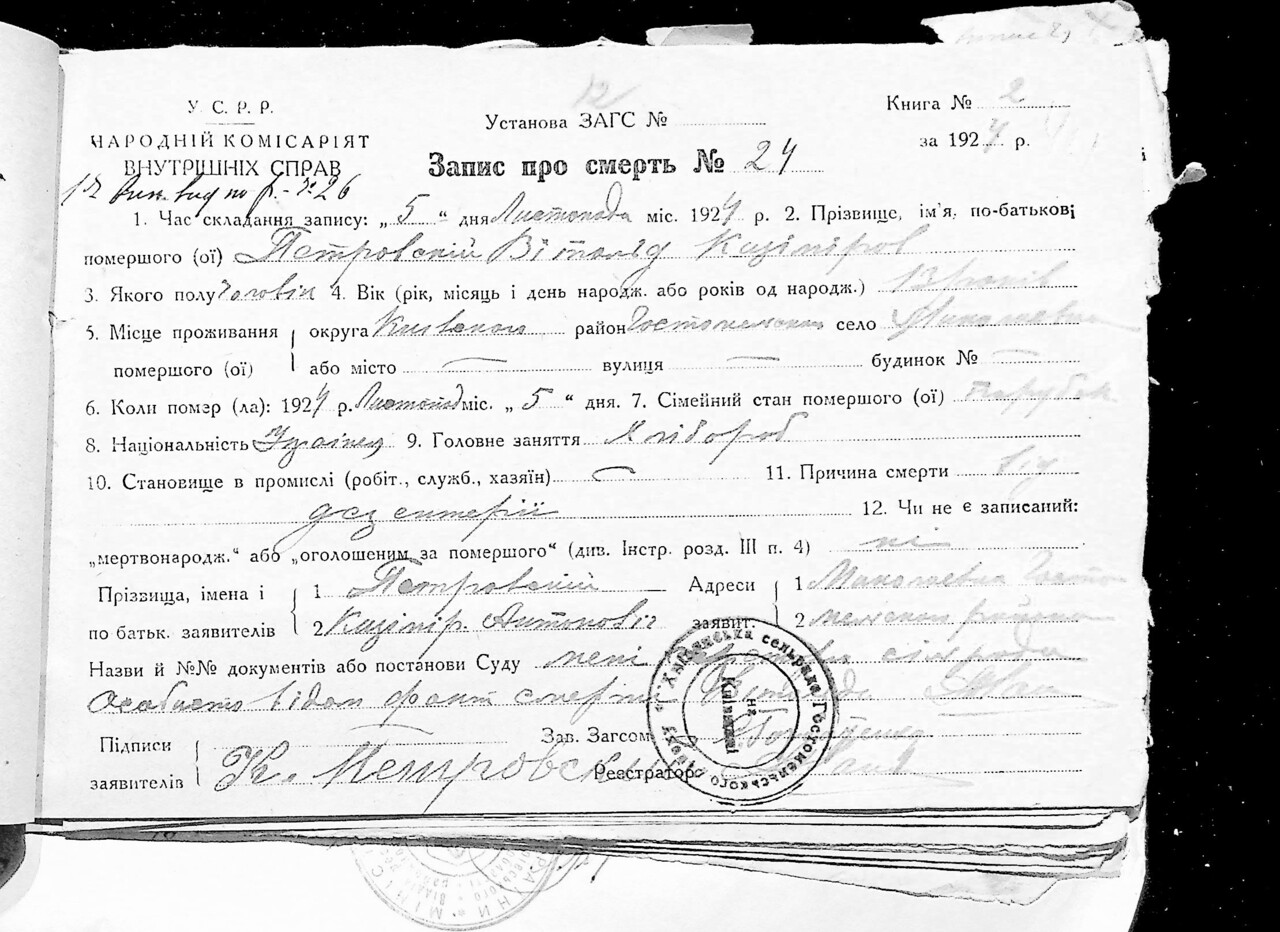 У. С. Р. Р.
НАРОДНІЙ КОМІСАРІЯТ
ВНУТРІШНІХ СПРАВ
12
Установа ЗАГС №
Книга № 2
за 1924 р.
Запис про смерть № 24
1. Час складання запису: „ 5 “ дня Листопада міс. 1924 р. 2. Прізвище, ім'я, по-батькові
помершого (ої) Петровскій Вітольд Казіміров
3. Якого полу Чоловік 4. Вік (рік, місяць і день народж. або років од народж.) 13 років
5. Місце проживання округа Киівського район Гостомельский село Микольськ
помершого (ої) або місто — вулиця — будинок № —
6. Коли помэр (ла): 1924 р. Листопад міс. „ 5 “ дня. 7. Сімейний стан помершого (ої) парубок
8. Національність Українец 9. Головне заняття Хлібороб
10. Становище в промислі (робіт., служб., хазяїн) — 11. Причина смерти від
дезентерії 12. Чи не є записаний:
„мертвонародж.“ або „оголошеним за помершого“ (див. Інстр. розд. III п. 4) ні
Прізвища, імена і 1 Петровскій Адреси 1
по батьк. заявителів 2 Казімір. Антоновіч заявит. 2 району
Назви й №№ документів або постанови Суду мені
Особисто відом факт смерти
Підписи Зав. Загсом
заявителів К. Петровский Реєстратор
сельрада Гостомельського району на Київщині